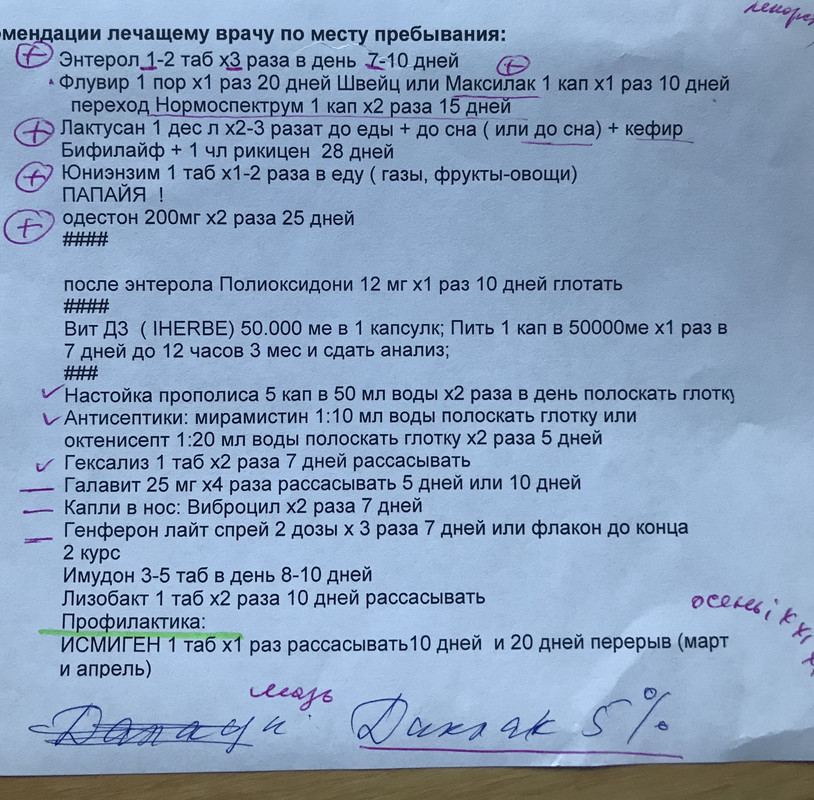 лекарс
омендации лечащему врачу по месту пребывания:
Энтерол 1-2 таб х3 раза в день 7-10 дней
Флувир 1 пор х1 раз 20 дней Швейц или Максилак 1 кап х1 раз 10 дней
переход Нормоспектрум 1 кап х2 раза 15 дней
Лактусан 1 дес л х2-3 разат до еды + до сна ( или до сна) + кефир
Бифилайф + 1 чл рикицен 28 дней
Юниэнзим 1 таб х1-2 раза в еду ( газы, фрукты-овощи)
ПАПАЙЯ !
одестон 200мг х2 раза 25 дней
####
после энтерола Полиоксидони 12 мг х1 раз 10 дней глотать
####
Вит Д3 ( IHERBE) 50.000 ме в 1 капсулк; Пить 1 кап в 50000ме х1 раз в
7 дней до 12 часов 3 мес и сдать анализ;
###
Настойка прополиса 5 кап в 50 мл воды х2 раза в день полоскать глотку
Антисептики: мирамистин 1:10 мл воды полоскать глотку или
октенисепт 1:20 мл воды полоскать глотку х2 раза 5 дней
Гексализ 1 таб х2 раза 7 дней рассасывать
Галавит 25 мг х4 раза рассасывать 5 дней или 10 дней
Капли в нос: Виброцил х2 раза 7 дней
Генферон лайт спрей 2 дозы х 3 раза 7 дней или флакон до конца
2 курс
Имудон 3-5 таб в день 8-10 дней
Лизобакт 1 таб х2 раза 10 дней рассасывать
осень;
Профилактика:
ИСМИГЕН 1 таб х1 раз рассасывать10 дней и 20 дней перерыв (март
и апрель)
мазь
Диклак 5%